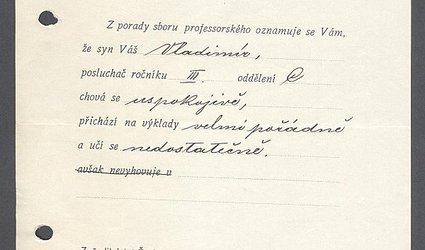 Z porady sboru professorského oznamuje se Vám,
že syn Váš Vladimír,
posluchač ročníku III. oddělení C
chová se uspokojivě,
přichází na výklady velmi pořádně
a učí se nedostatečně.
avšak nevyhovuje v